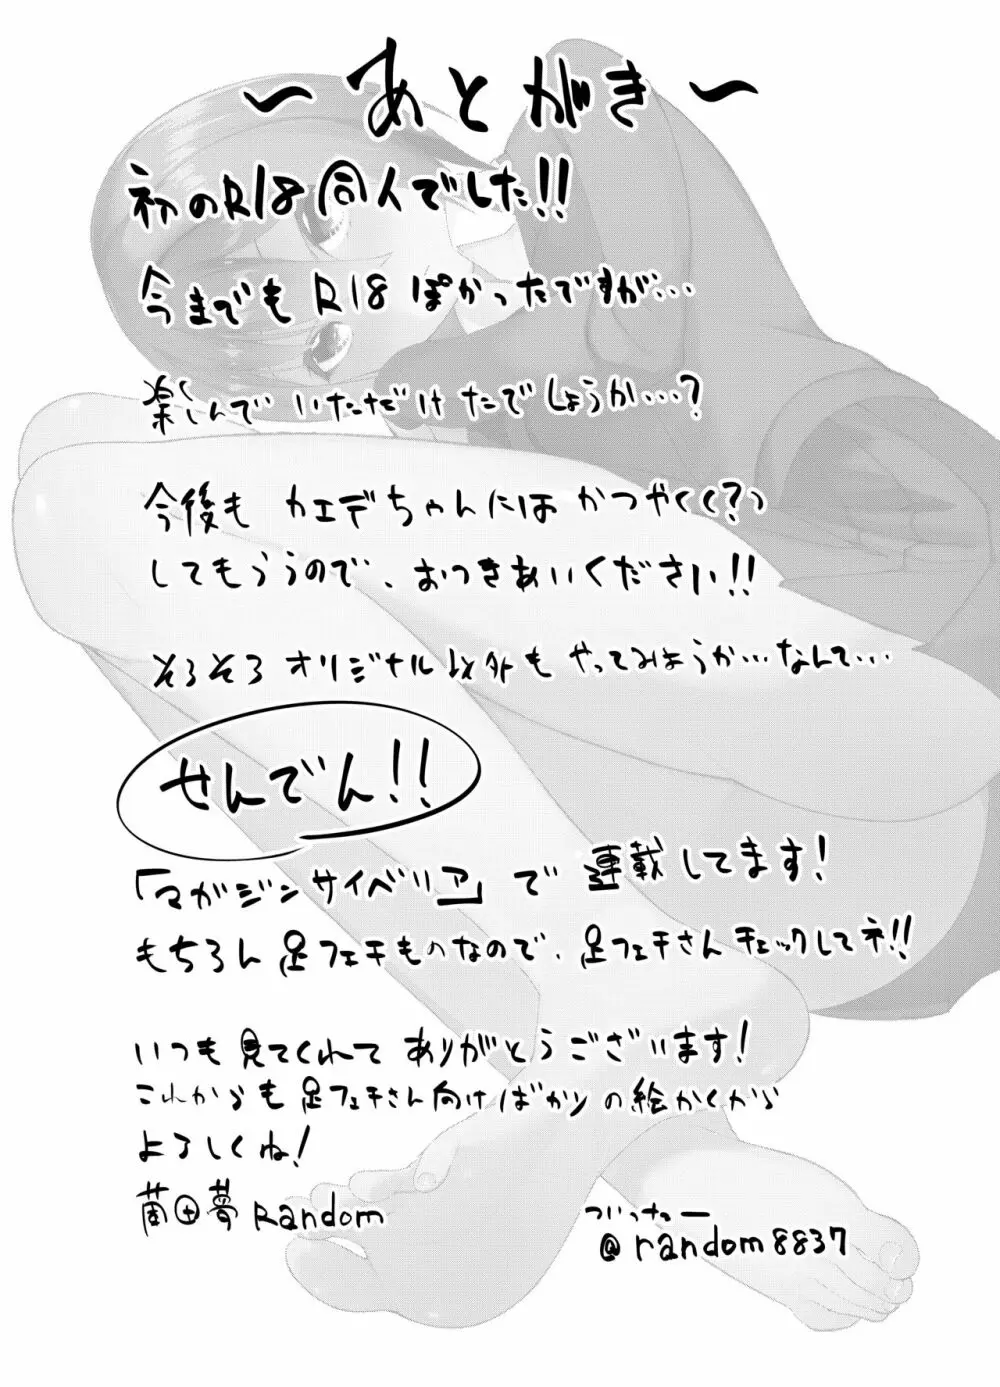 〜あとがき〜
初のR18同人でした!!
今までもR18ぽかったですが…
楽しんでいただけたでしょうか…?
今後もカエデちゃんにはかつやく(?)
してもらうので、おつきあいください!!
そろそろオリジナル以外もやってみようか…なんて…
せんでん!!
「マガジンサイベリア」で連載してます!
もちろん足フェチものなので、足フェチさんチェックしてネ!!
いつも見てくれてありがとうございます!
これからも足フェチさん向けばかりの絵かくから
よろしくね!
田夢Random
ついったー
@random8837